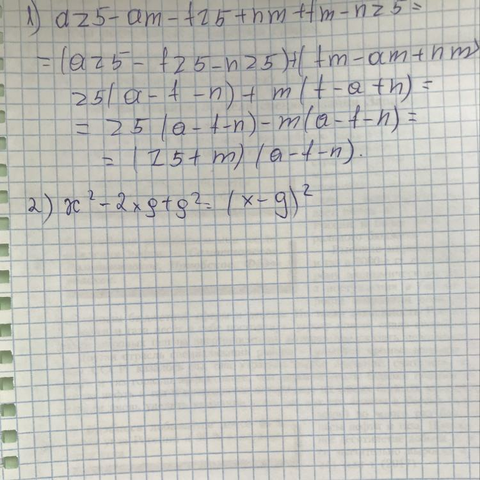 1) az5-am-tz5+nm+tm-nz5=
=(az5-tz5-nz5)+(tm-am+nm)
z5(a-t-n)+m(t-a+n)=
=z5(a-t-n)-m(a-t-n)=
=(z5+m)(a-t-n).
2) x²-2xg+g²=(x-g)²